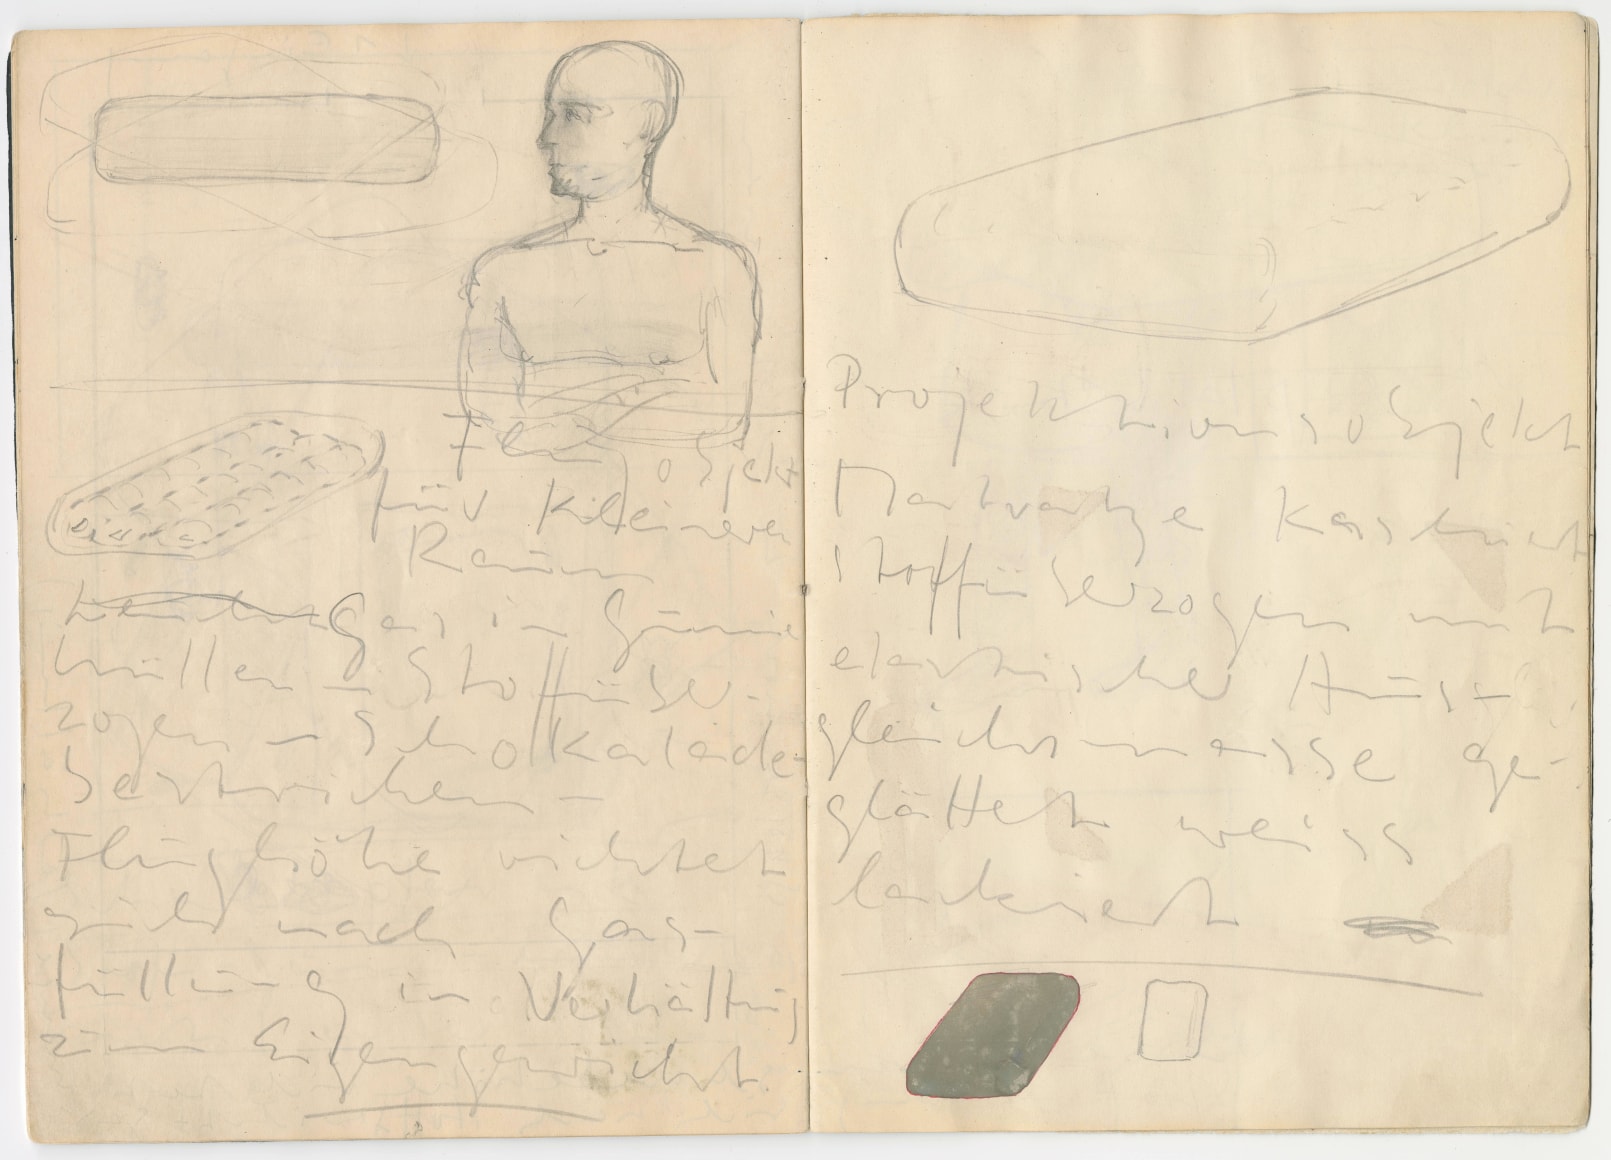 Flugobjekt
für kleineren
Raum
Gas in Gummi
hüllen – Stoffüber-
zogen – Schokolade-
bestrichen –
Flughöhe richtet
sich nach Gas-
füllung im Verhältnis
zum Eigengewicht.
Projektionsobjekt
Matratze kaschiert
stoffüberzogen mit
elastischer Aus-
gleichsmasse ge-
glättet weiss
lackiert